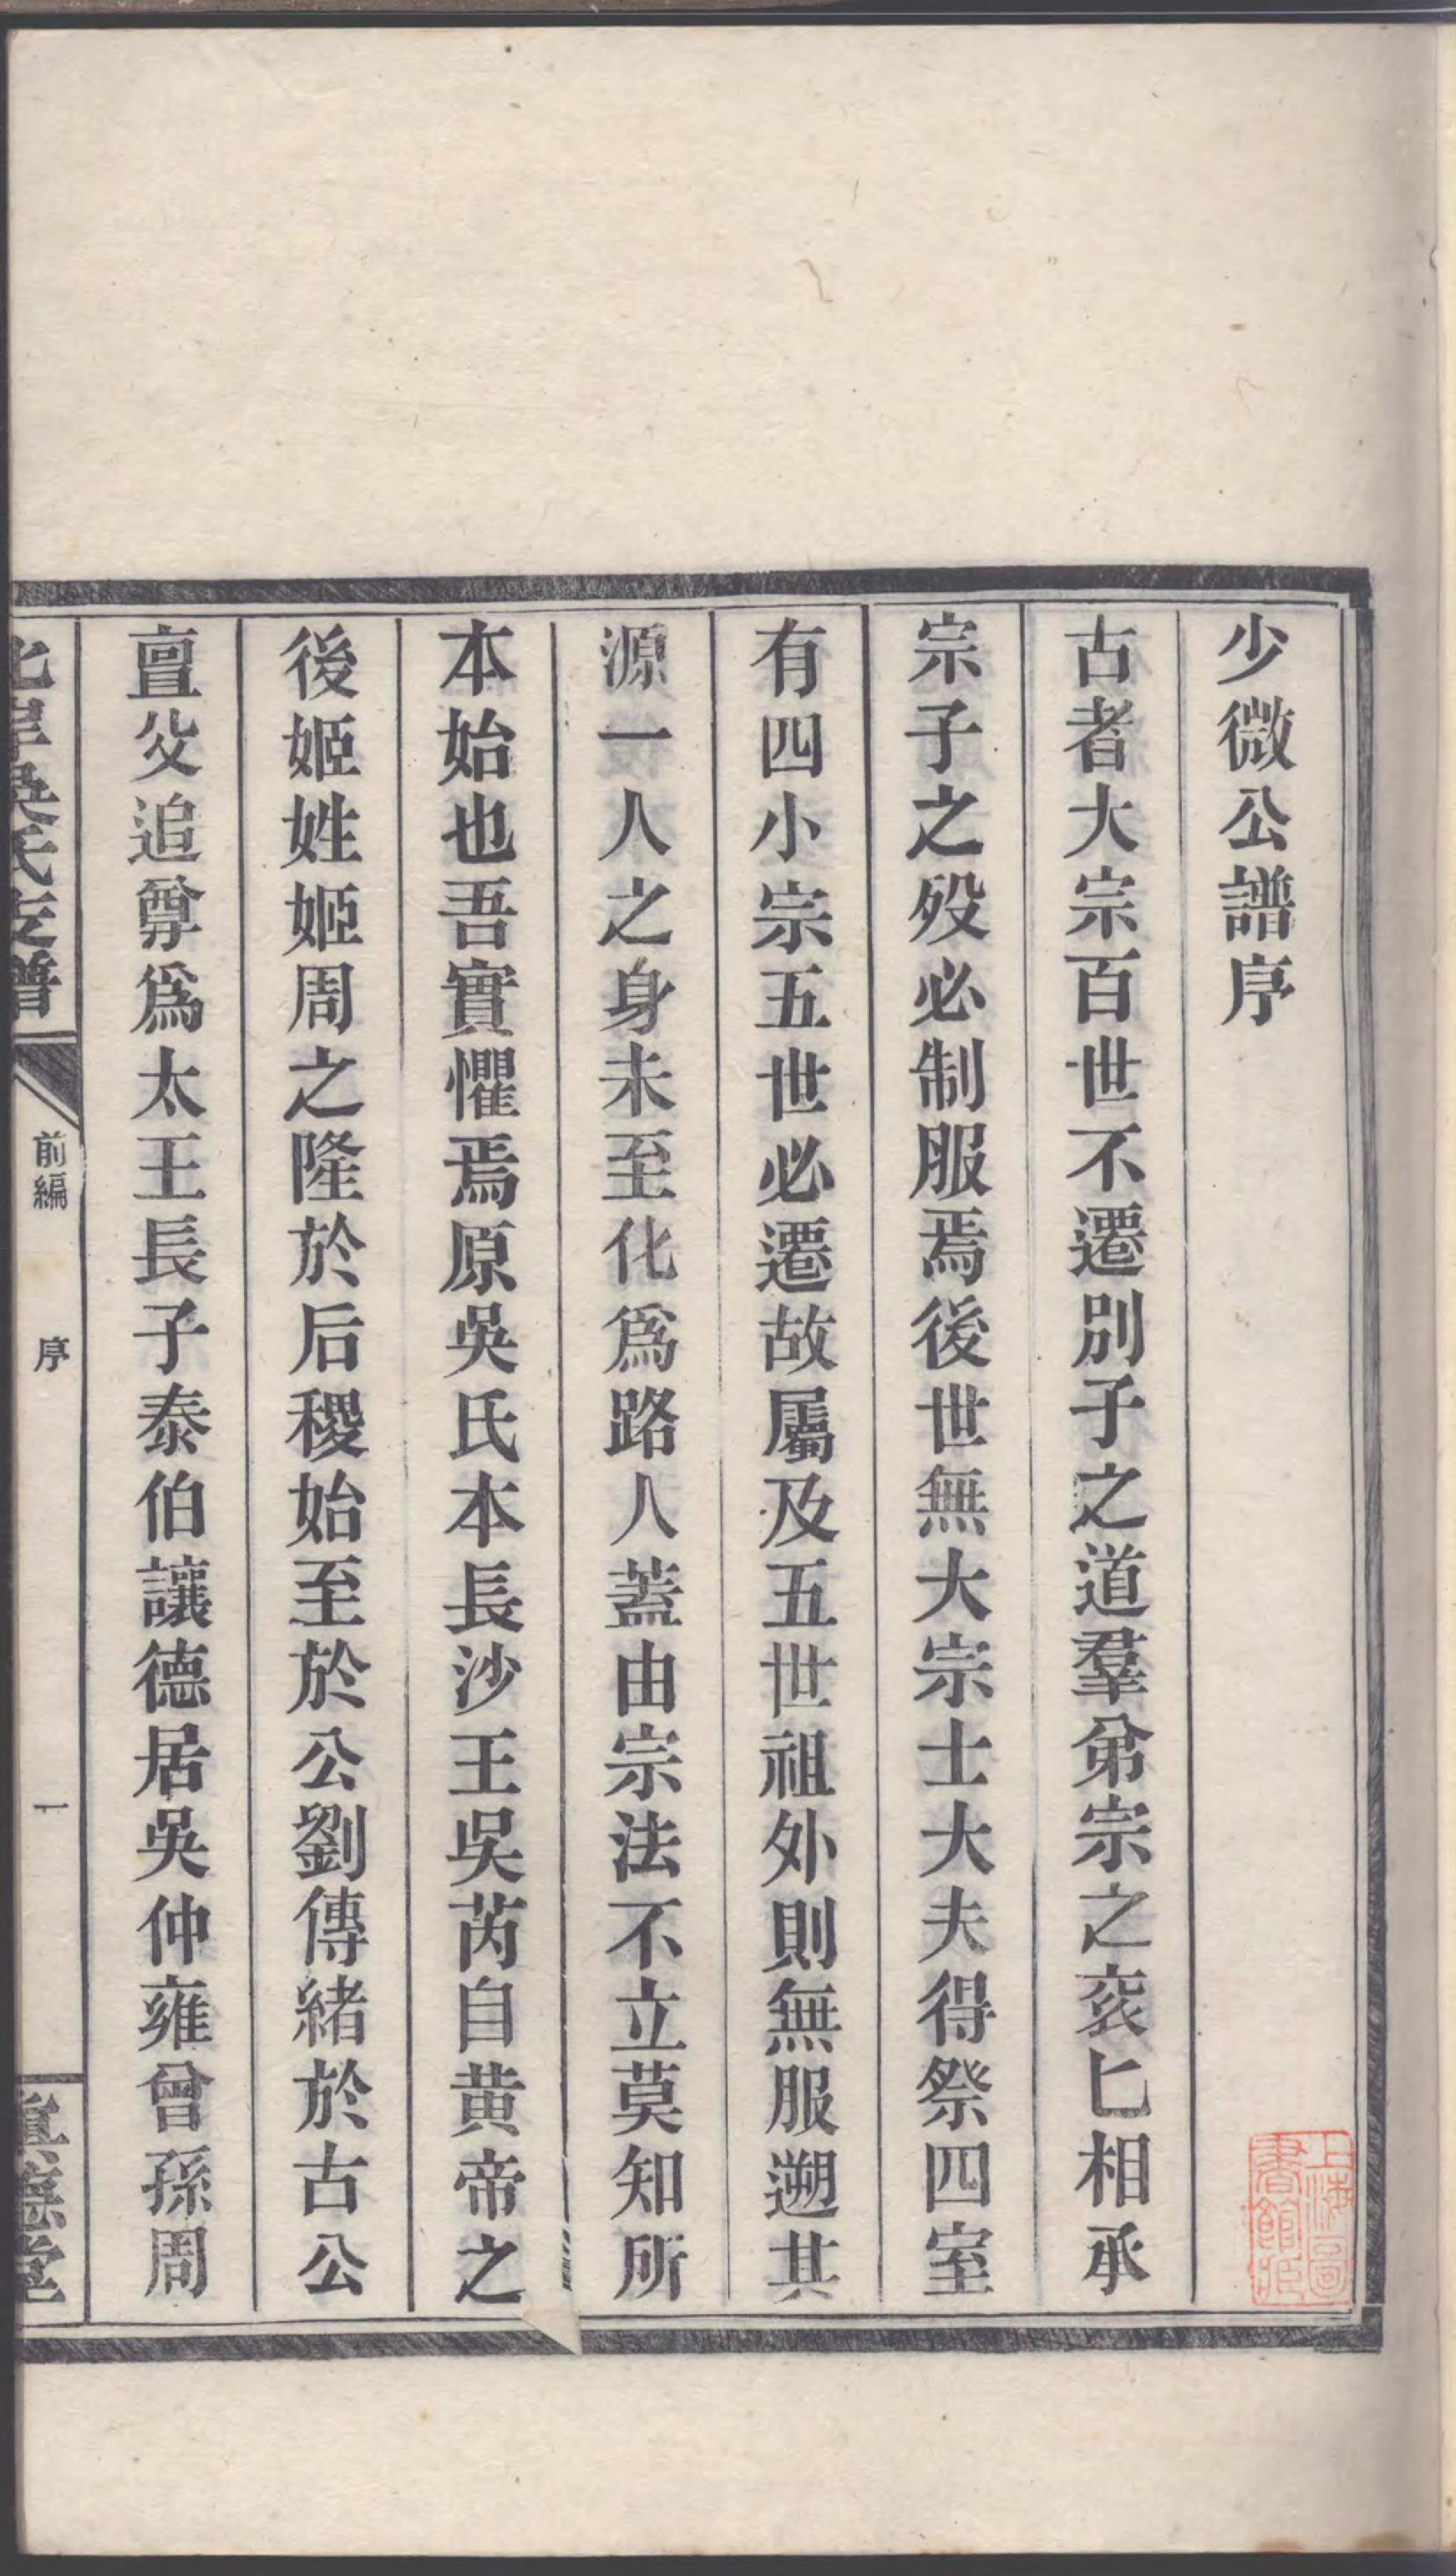 少微公譜序
古者大宗百世不遷別子之道羣弟宗之衮匕相承
宗子之歿必制服焉後世無大宗士大夫得祭四室
有四小宗五世必遷故屬及五世祖外則無服遡其
源一人之身未至化爲路人蓋由宗法不立莫知所
本始也吾實懼焉原吳氏本長沙王吳芮自黄帝之
後姬姓姬周之隆於后稷始至於公劉傳緒於古公
亶父追尊爲太王長子泰伯讓德居吳仲雍曾孫周
北岸吳氏支譜
前編
序
一
真德堂
上海圖
書館藏